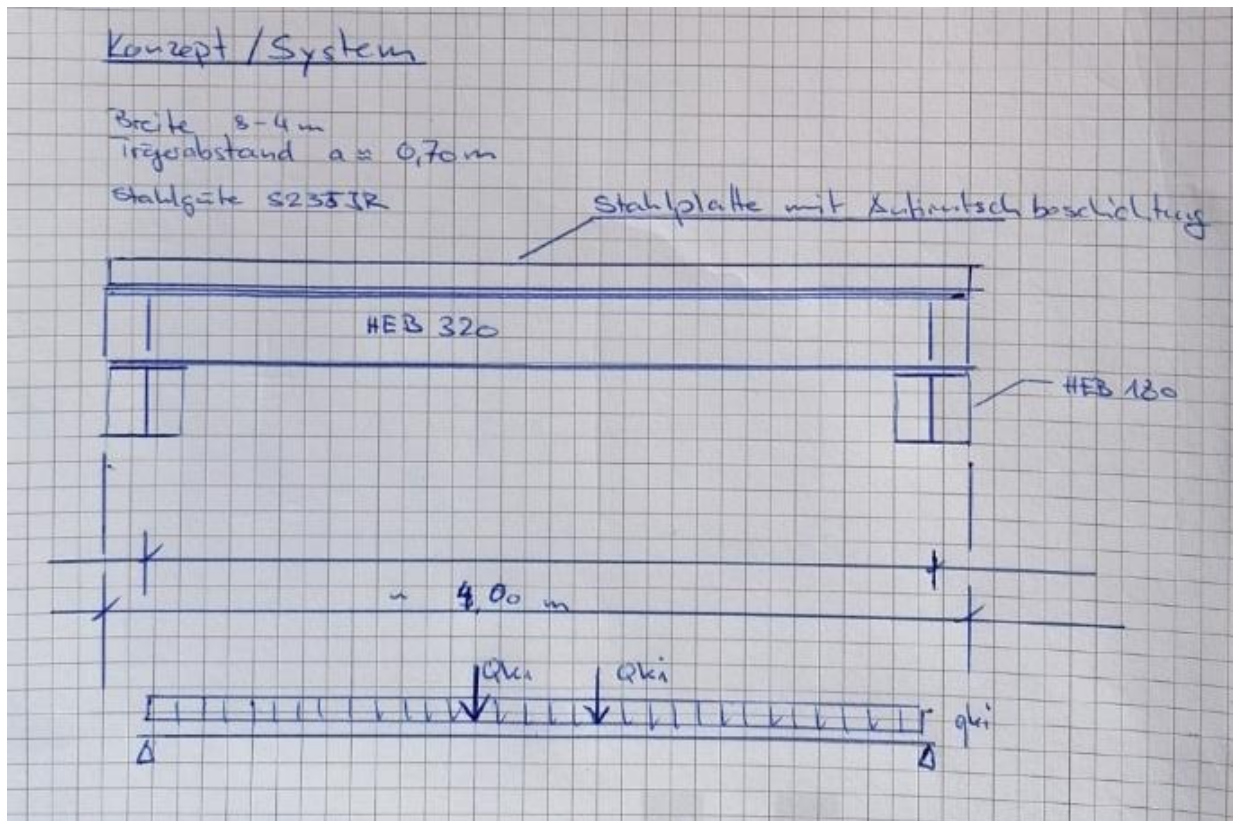 Konzept / System
Breite 3-4 m
Trägerabstand a = 0,70 m
Stahlgüte S235JR
Stahlplatte mit Antirutschbeschichtung
HEB 320
HEB 180
~ 4,00 m
Qki Qki
qki